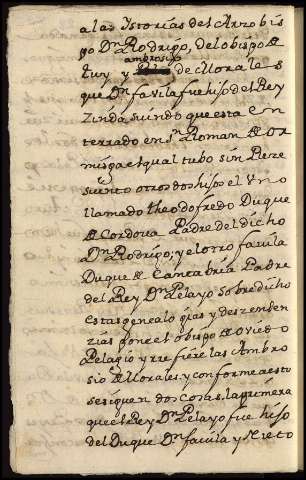 a las Ystorias del Arzobis
po Dn Rodrigo, del obispo de
Tuy y ambrosio de Morales
que Dn favila fue hijo del Rey
Zindasuindo que esta en
terrado en Sn Roman de or
misga el qual tubo sin Reze
suinto otros dos hijos el Vno
llamado theodofredo Duque
de Cordova Padre del dicho
Dn Rodrigo; y el otro favila
Duque de Cantabria Padre
del Rey Dn Pelayo sobre dicho
estas genealogias y deszenden
zias pone el obispo de oviedo
Pelagio y rrefiere las Ambro
sio de Morales y conforme a estu
se siguen dos cosas, la primera
que el Rey Dn Pelayo fue hijo
del Duque Dn favila y Nieto